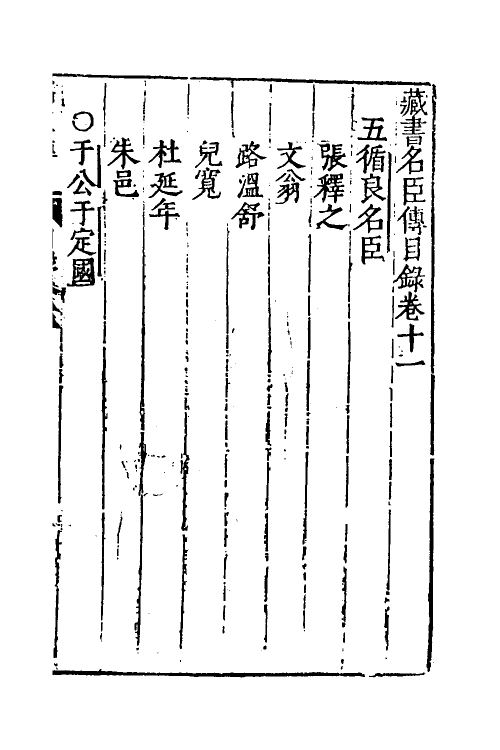 藏書名臣傳目錄卷十一
五循良名臣
張釋之
文翁
路溫舒
兒寬
杜延年
朱邑
〇于公于定國